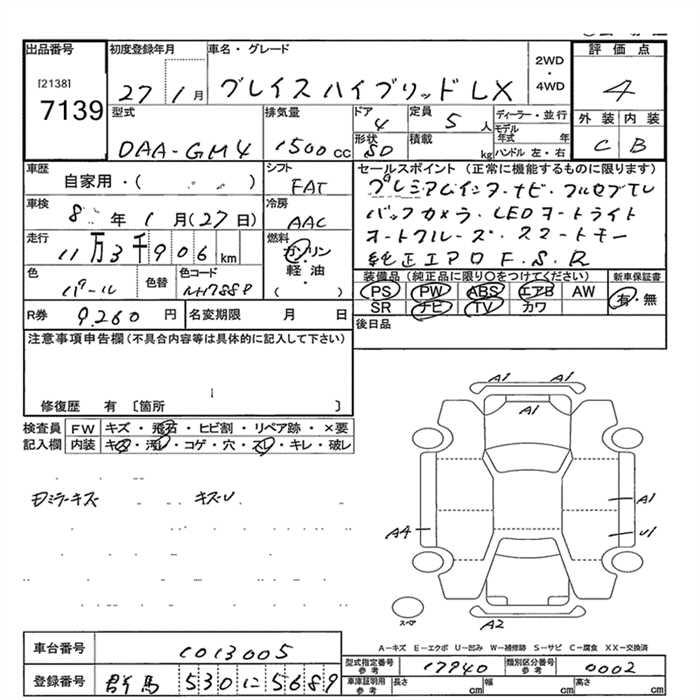 出品番号 初度登録年月 車名・グレード 2WD・4WD 評価点
[2138] 7139 27 1月 グレイスハイブリッドLX 4
型式 排気量 ドア 4 定員 5人 ディーラー・並行 外装 内装
DAA-GM4 1500cc 形状 SD 積載 kg モデル年式 年 ハンドル 左・右 C B
車歴 自家用・( ) シフト FAT セールスポイント (正常に機能するものに限ります)
プレミアムインターナビ・フルセグTV
車検 8年1月(27日) 冷房 AAC バックカメラ・LEDオートライト
走行 11万3千906km 燃料 ガソリン・軽油・( ) オートクルーズ・スマートキー
純正エアロF.S.R
色 パール 色替 色コード NH788P 装備品 (純正品に限り○をつけてください) 新車保証書
PS PW ABS エアB AW 有・無
SR ナビ TV カワ
R券 9,260円 名変期限 月 日 後日品
注意事項申告欄 (不具合内容等は具体的に記入して下さい)
修復歴 有 [箇所 ]
検査員 FW キズ・飛石・ヒビ割・リペア跡・×要
記入欄 内装 キズ・汚レ・コゲ・穴・スレ・キレ・破レ
キズU
A1 A1
A1
A1
A4 U1
スペア A2
A-キズ E-エクボ U-凹み W-補修跡 S-サビ C-腐食 XX-交換済
車台番号 1013005
型式指定番号 参考 17940 類別区分番号 参考 0002
登録番号 群馬 530 に 5689 車庫証明用 参考 長さ cm 幅 cm 高さ cm